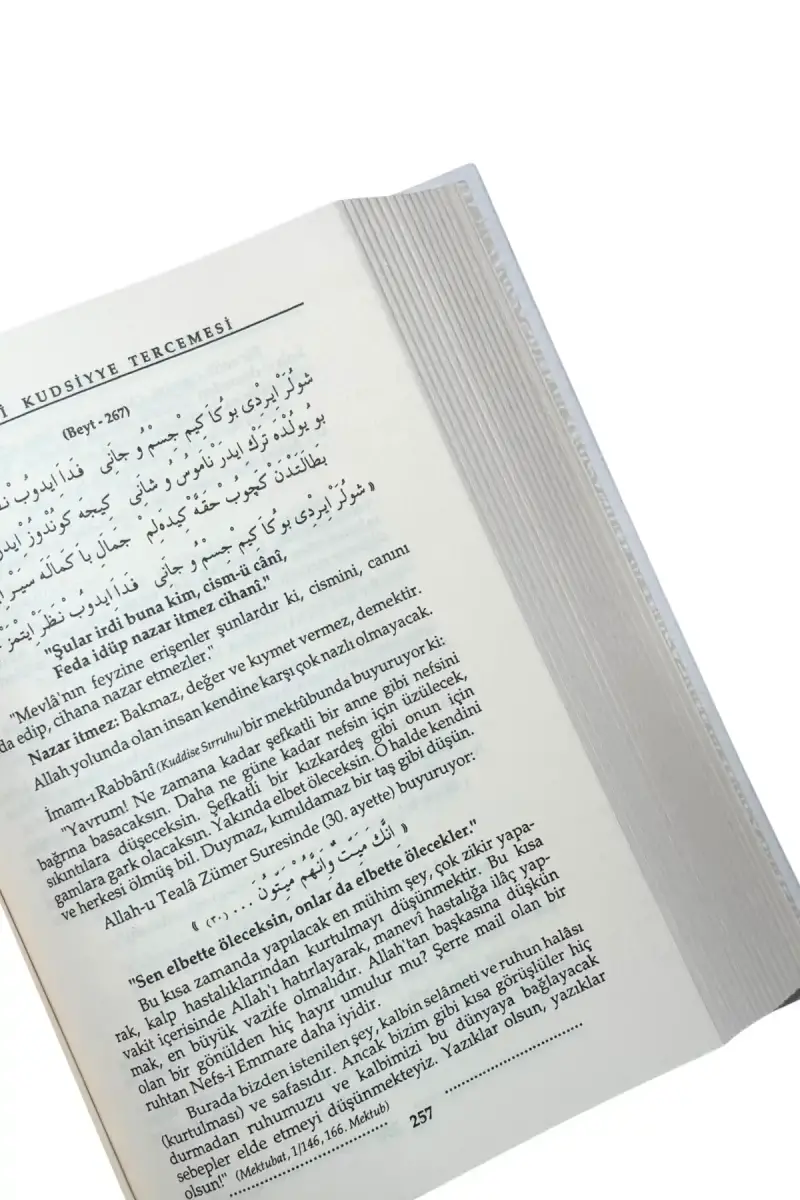 Î KUDSİYYE TERCEMESİ
(Beyt - 267)
شولَر ايردى بوكا كيم جسم و جانى فدا ايدوب
بو يولده ترك ايدر ناموس و شانى كيجه كوندوز
بطالتدن كچوب حقه كيده‌لم جمال با كماله سير
«شولر ايردى بوكا كيم جسم و جانى فدا ايدوب نظر ايتمز
"Şular irdi buna kim, cism-ü cânî,
Feda idüp nazar itmez cihanî."
"Mevlâ'nın feyzine erişenler şunlardır ki, cismini, canını
da edip, cihana nazar etmezler."
Nazar itmez: Bakmaz, değer ve kıymet vermez, demektir.
Allah yolunda olan insan kendine karşı çok nazlı olmayacak.
İmam-ı Rabbânî (Kuddise Sırruhu) bir mektûbunda buyuruyor ki:
"Yavrum! Ne zamana kadar şefkatli bir anne gibi nefsini
bağrına basacaksın. Daha ne güne kadar nefsin için üzülecek,
sıkıntılara düşeceksin. Şefkatli bir kızkardeş gibi onun için
gamlara gark olacaksın. Yakında elbet öleceksin. O halde kendini
ve herkesi ölmüş bil. Duymaz, kımıldamaz bir taş gibi düşün.
Allah-u Tealâ Zümer Suresinde (30. ayette) buyuruyor:
﴿ اِنَّكَ مَيِّتٌ وَاِنَّهُمْ مَيِّتُونَ ... (٣٠) ﴾
"Sen elbette öleceksin, onlar da elbette ölecekler."
Bu kısa zamanda yapılacak en mühim şey, çok zikir yapa-
rak, kalp hastalıklarından kurtulmayı düşünmektir. Bu kısa
vakit içerisinde Allah'ı hatırlayarak, manevî hastalığa ilâç yap-
mak, en büyük vazife olmalıdır. Allah'tan başkasına düşkün
olan bir gönülden hiç hayır umulur mu? Şerre mail olan bir
ruhtan Nefs-i Emmare daha iyidir.
Burada bizden istenilen şey, kalbin selâmeti ve ruhun halâsı
(kurtulması) ve safasıdır. Ancak bizim gibi kısa görüşlüler hiç
durmadan ruhumuzu ve kalbimizi bu dünyaya bağlayacak
sebepler elde etmeyi düşünmekteyiz. Yazıklar olsun, yazıklar
olsun!" (Mektubat, 1/146, 166. Mektub)
257